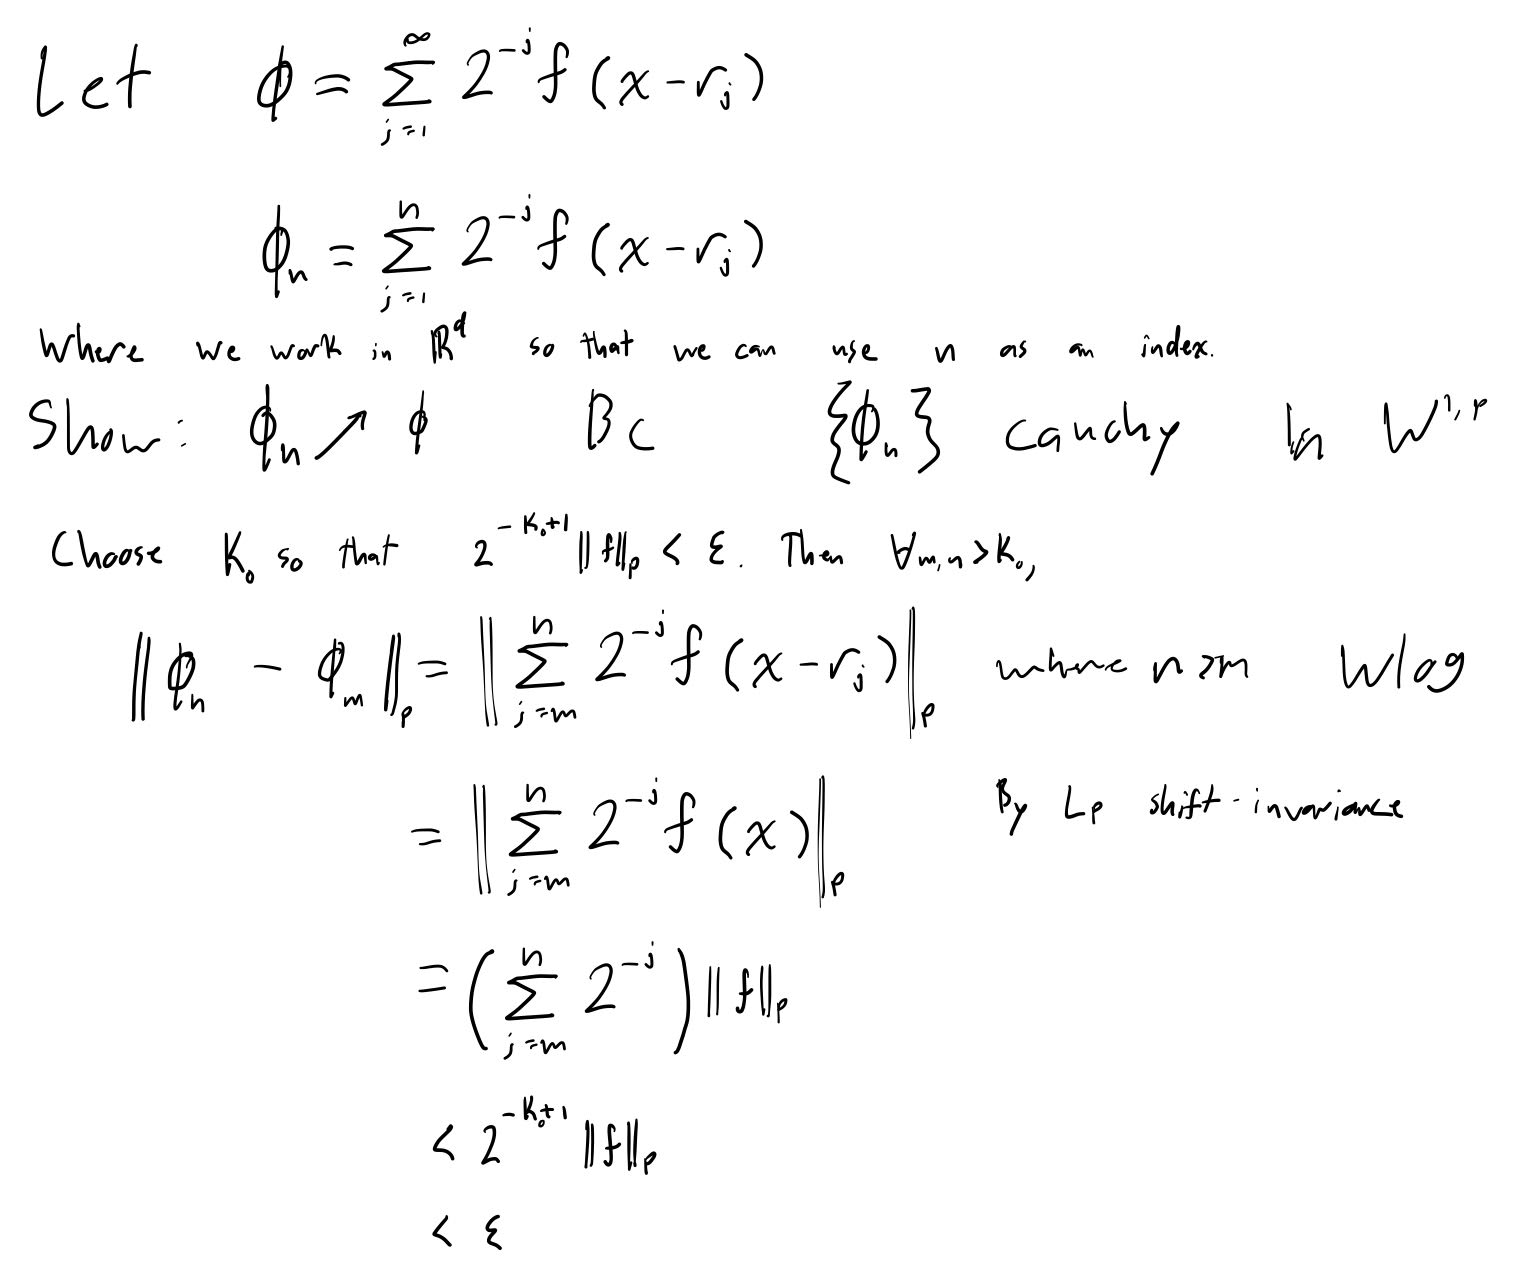 Let ϕ = ∑_{j=1}^{∞} 2^{-j} f(x-r_j)
ϕ_n = ∑_{j=1}^{n} 2^{-j} f(x-r_j)
Where we work in ℝ^d so that we can use n as an index.
Show: ϕ_n ↗ ϕ Bc {ϕ_n} cauchy in W^{1,p}
Choose K_0 so that 2^{-K_0+1} ‖f‖_p < ε. Then ∀m,n>K_0,
‖ϕ_n - ϕ_m‖_p = ‖∑_{j=m}^{n} 2^{-j} f(x-r_j)‖_p where n>m Wlog
= ‖∑_{j=m}^{n} 2^{-j} f(x)‖_p By Lp shift-invariance
= (∑_{j=m}^{n} 2^{-j}) ‖f‖_p
< 2^{-K_0+1} ‖f‖_p
< ε